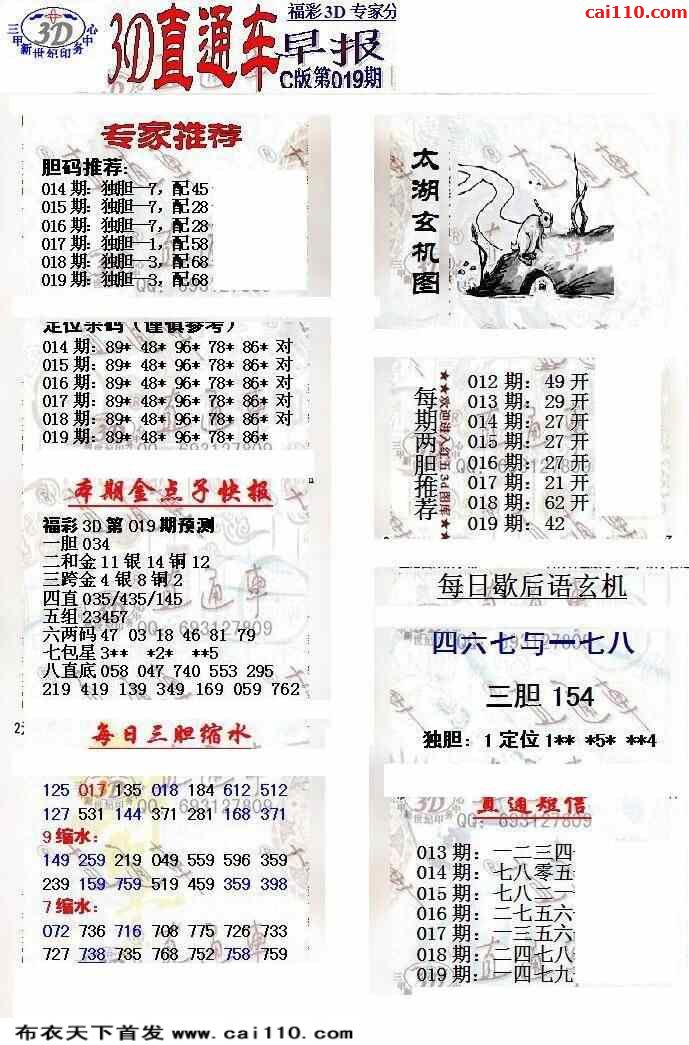 福彩3D 专家分
cai110.com
三甲 3D 心中
新世纪印务
3D直通车 早报
C版第019期
专家推荐
胆码推荐:
014期: 独胆—7, 配45
015期: 独胆—7, 配28
016期: 独胆—7, 配28
017期: 独胆—1, 配58
018期: 独胆—3, 配68
019期: 独胆—3, 配68
QQ: 693127809
定位杀码（谨慎参考）
014期: 89* 48* 96* 78* 86* 对
015期: 89* 48* 96* 78* 86* 对
016期: 89* 48* 96* 78* 86* 对
017期: 89* 48* 96* 78* 86* 对
018期: 89* 48* 96* 78* 86* 对
019期: 89* 48* 96* 78* 86*
本期金点子快报
福彩3D第019期预测
一胆034
二和金11银14铜12
三跨金4银8铜2
四直035/435/145
五组23457
六两码47 03 18 46 81 79
七包星3** *2* **5
八直底058 047 740 553 295
219 419 139 349 169 059 762
每日三胆缩水
125 017 135 018 184 612 512
127 531 144 371 281 168 371
9缩水:
149 259 219 049 559 596 359
239 159 759 519 459 359 398
7缩水:
072 736 716 708 775 726 733
727 738 735 768 752 758 759
太湖玄机图
每期两胆推荐
★★欢迎进入红五3d图库★★
012期: 49开
013期: 29开
014期: 27开
015期: 27开
016期: 27开
017期: 21开
018期: 62开
019期: 42
每日歇后语玄机
四六七与一七八
三胆 154
独胆: 1 定位1** *5* **4
直通短信
QQ: 693127809
013期: 一二三四
014期: 七八零五
015期: 七八二一
016期: 二七五六
017期: 一三五六
018期: 二四七八
019期: 一四七九
布衣天下首发 www.cai110.com